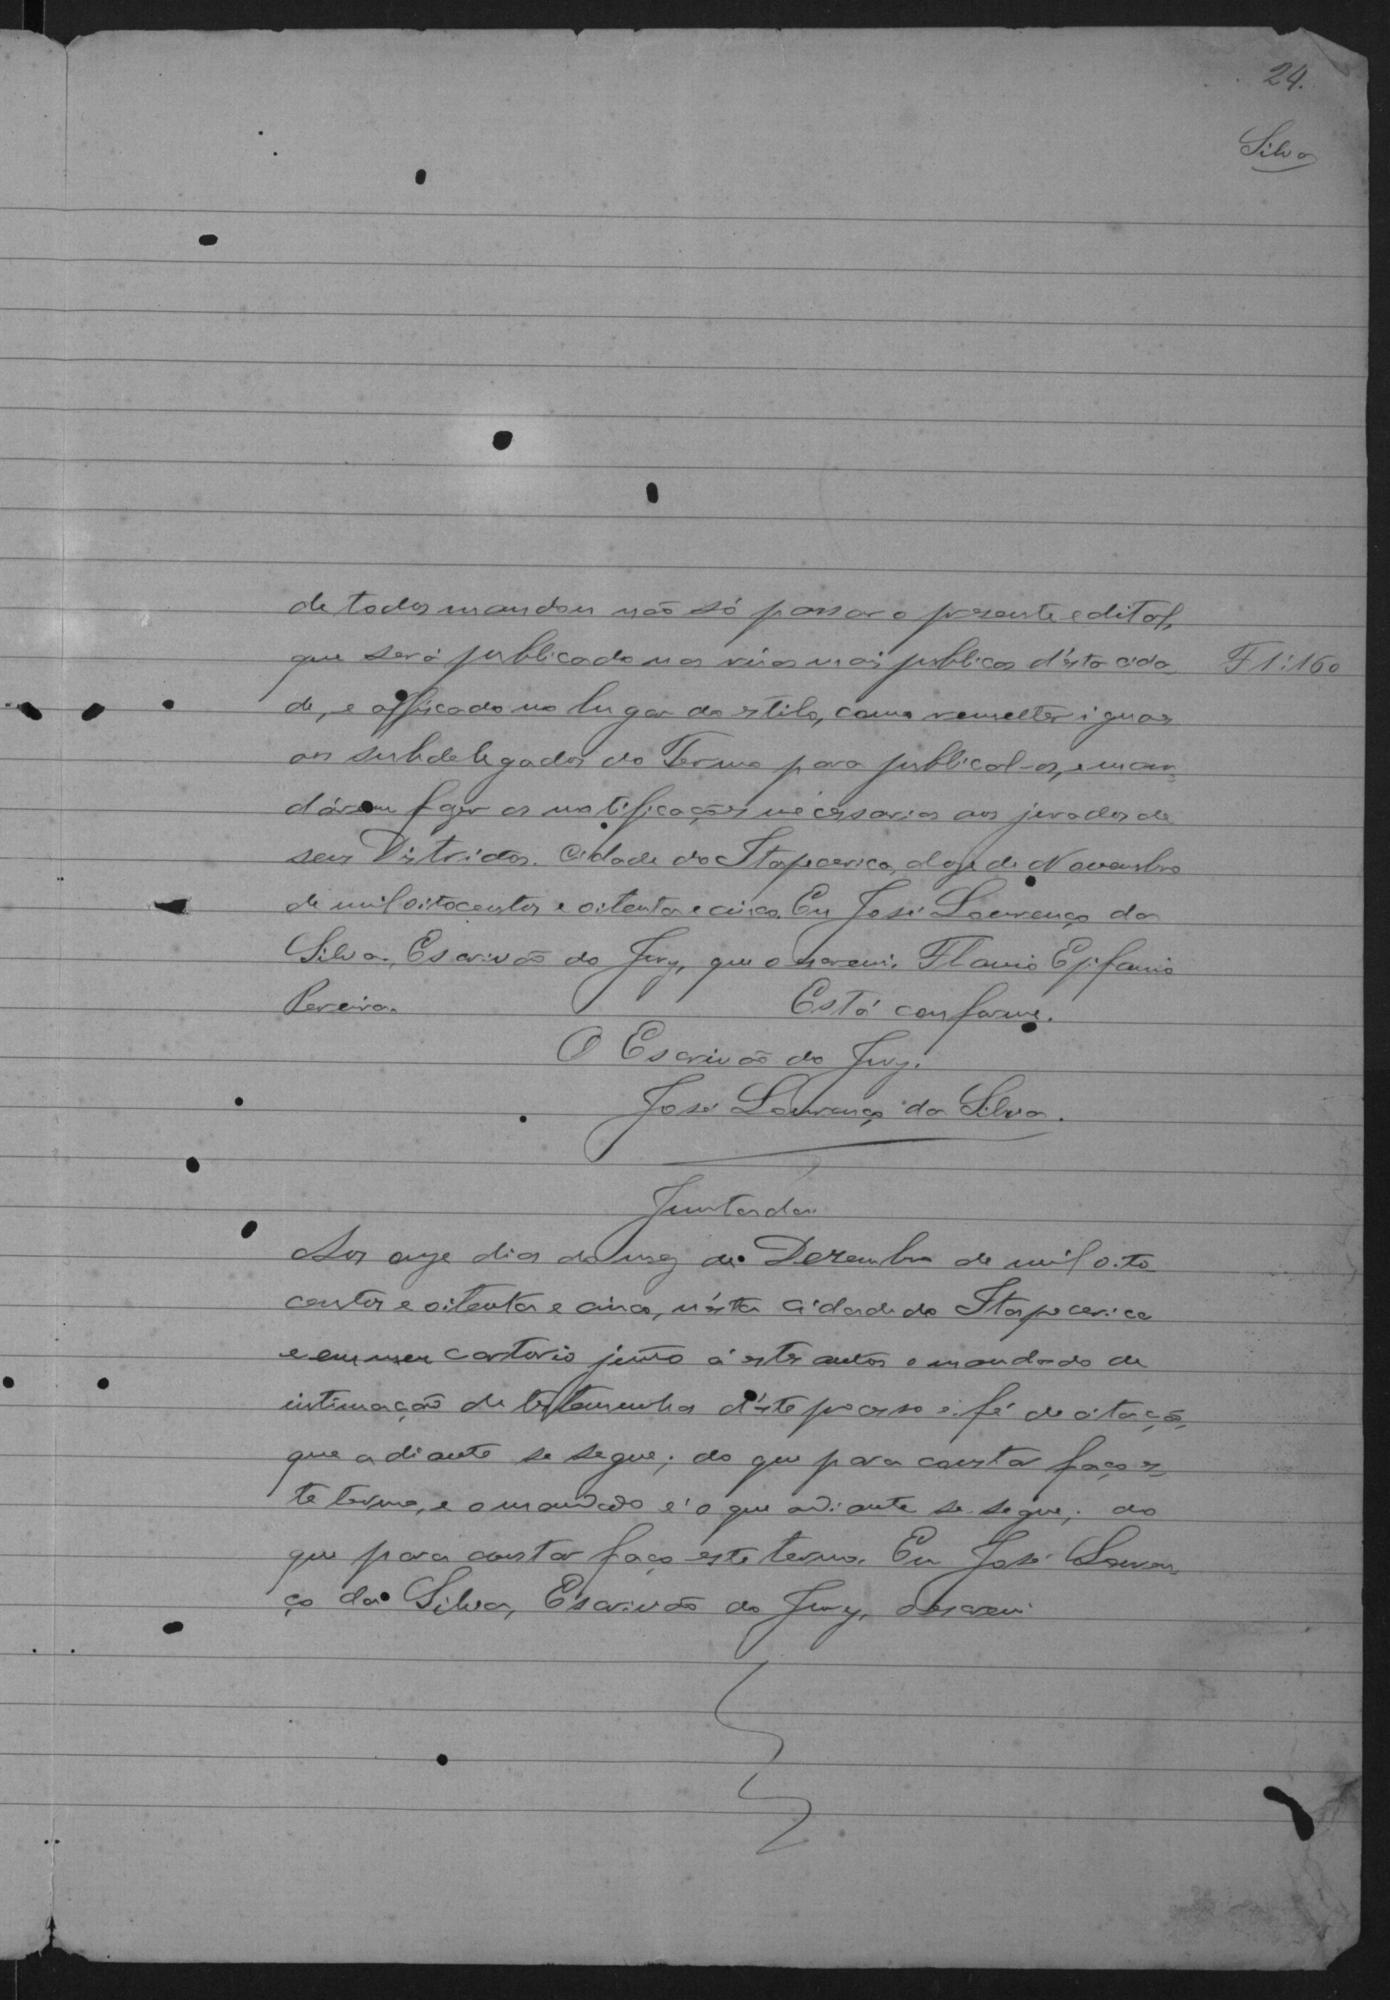 24.
Silva
de todos mandou não só passar o presente edital,
que será publicado nas ruas mais publicas d'ésta cida
F 1:160
de, e afficado no lugar do stilo, como remetter iguaes
aos subdelegados do Termo para publical-os, e man
dárem fazer as notificações nécessarias aos jurados de
seus Districtos. Cidade do Itapecerica, doze de Novembro
de mil oitocentos e oitenta e cinco. Eu José Lourenço da
Silva, Escrivão do Jury, que o escrevi. Flavio Epifanio
Pereira. Está conforme.
O Escrivão do Jury.
José Lourenço da Silva.
Juntada
Aos onze dias do mez de Dezembro de mil oito
centos e oitenta e cinco, n'ésta Cidade do Itapecerica
e em meu cartorio junto á estes autos o mandado de
intimação de testemunhas d'éste processo e fé de citação,
que adiante se segue; do que para constar faço es
te termo, e o mandado é o que adiante se segue; do
que para constar faço este termo. Eu José Louren
ço da Silva, Escrivão do Jury, o escrevi